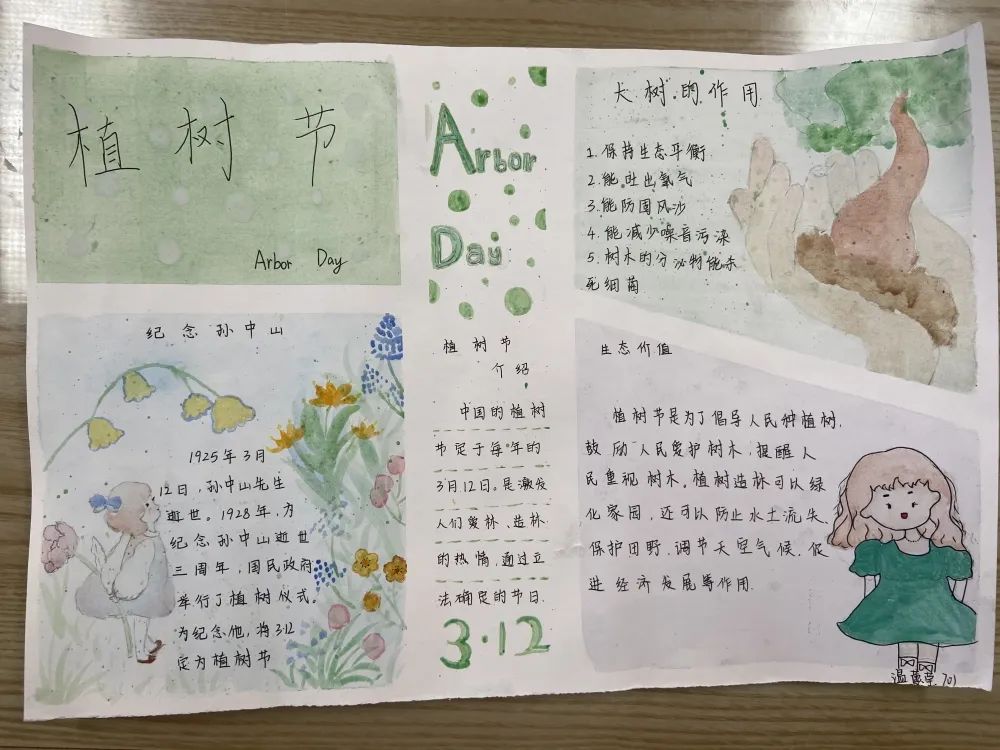 植树节
Arbor Day
纪念孙中山
1925年3月
12日,孙中山先生
逝世。1928年,为
纪念孙中山逝世
三周年,国民政府
举行了植树仪式。
为纪念他,将3·12
定为植树节
Arbor
Day
植树节
介绍
中国的植树
节定于每年的
3月12日。是激发
人们爱林、造林
的热情,通过立
法确定的节日.
3·12
大树的作用
1.保持生态平衡
2.能吐出氧气
3.能防固风沙
4.能减少噪音污染
5.树木的分泌物能杀
死细菌
生态价值
植树节是为了倡导人民种植树,
鼓励人民爱护树木,提醒人
民重视树木。植树造林可以绿
化家园,还可以防止水土流失、
保护田野、调节天空气候、促
进经济发展等作用.
温 701